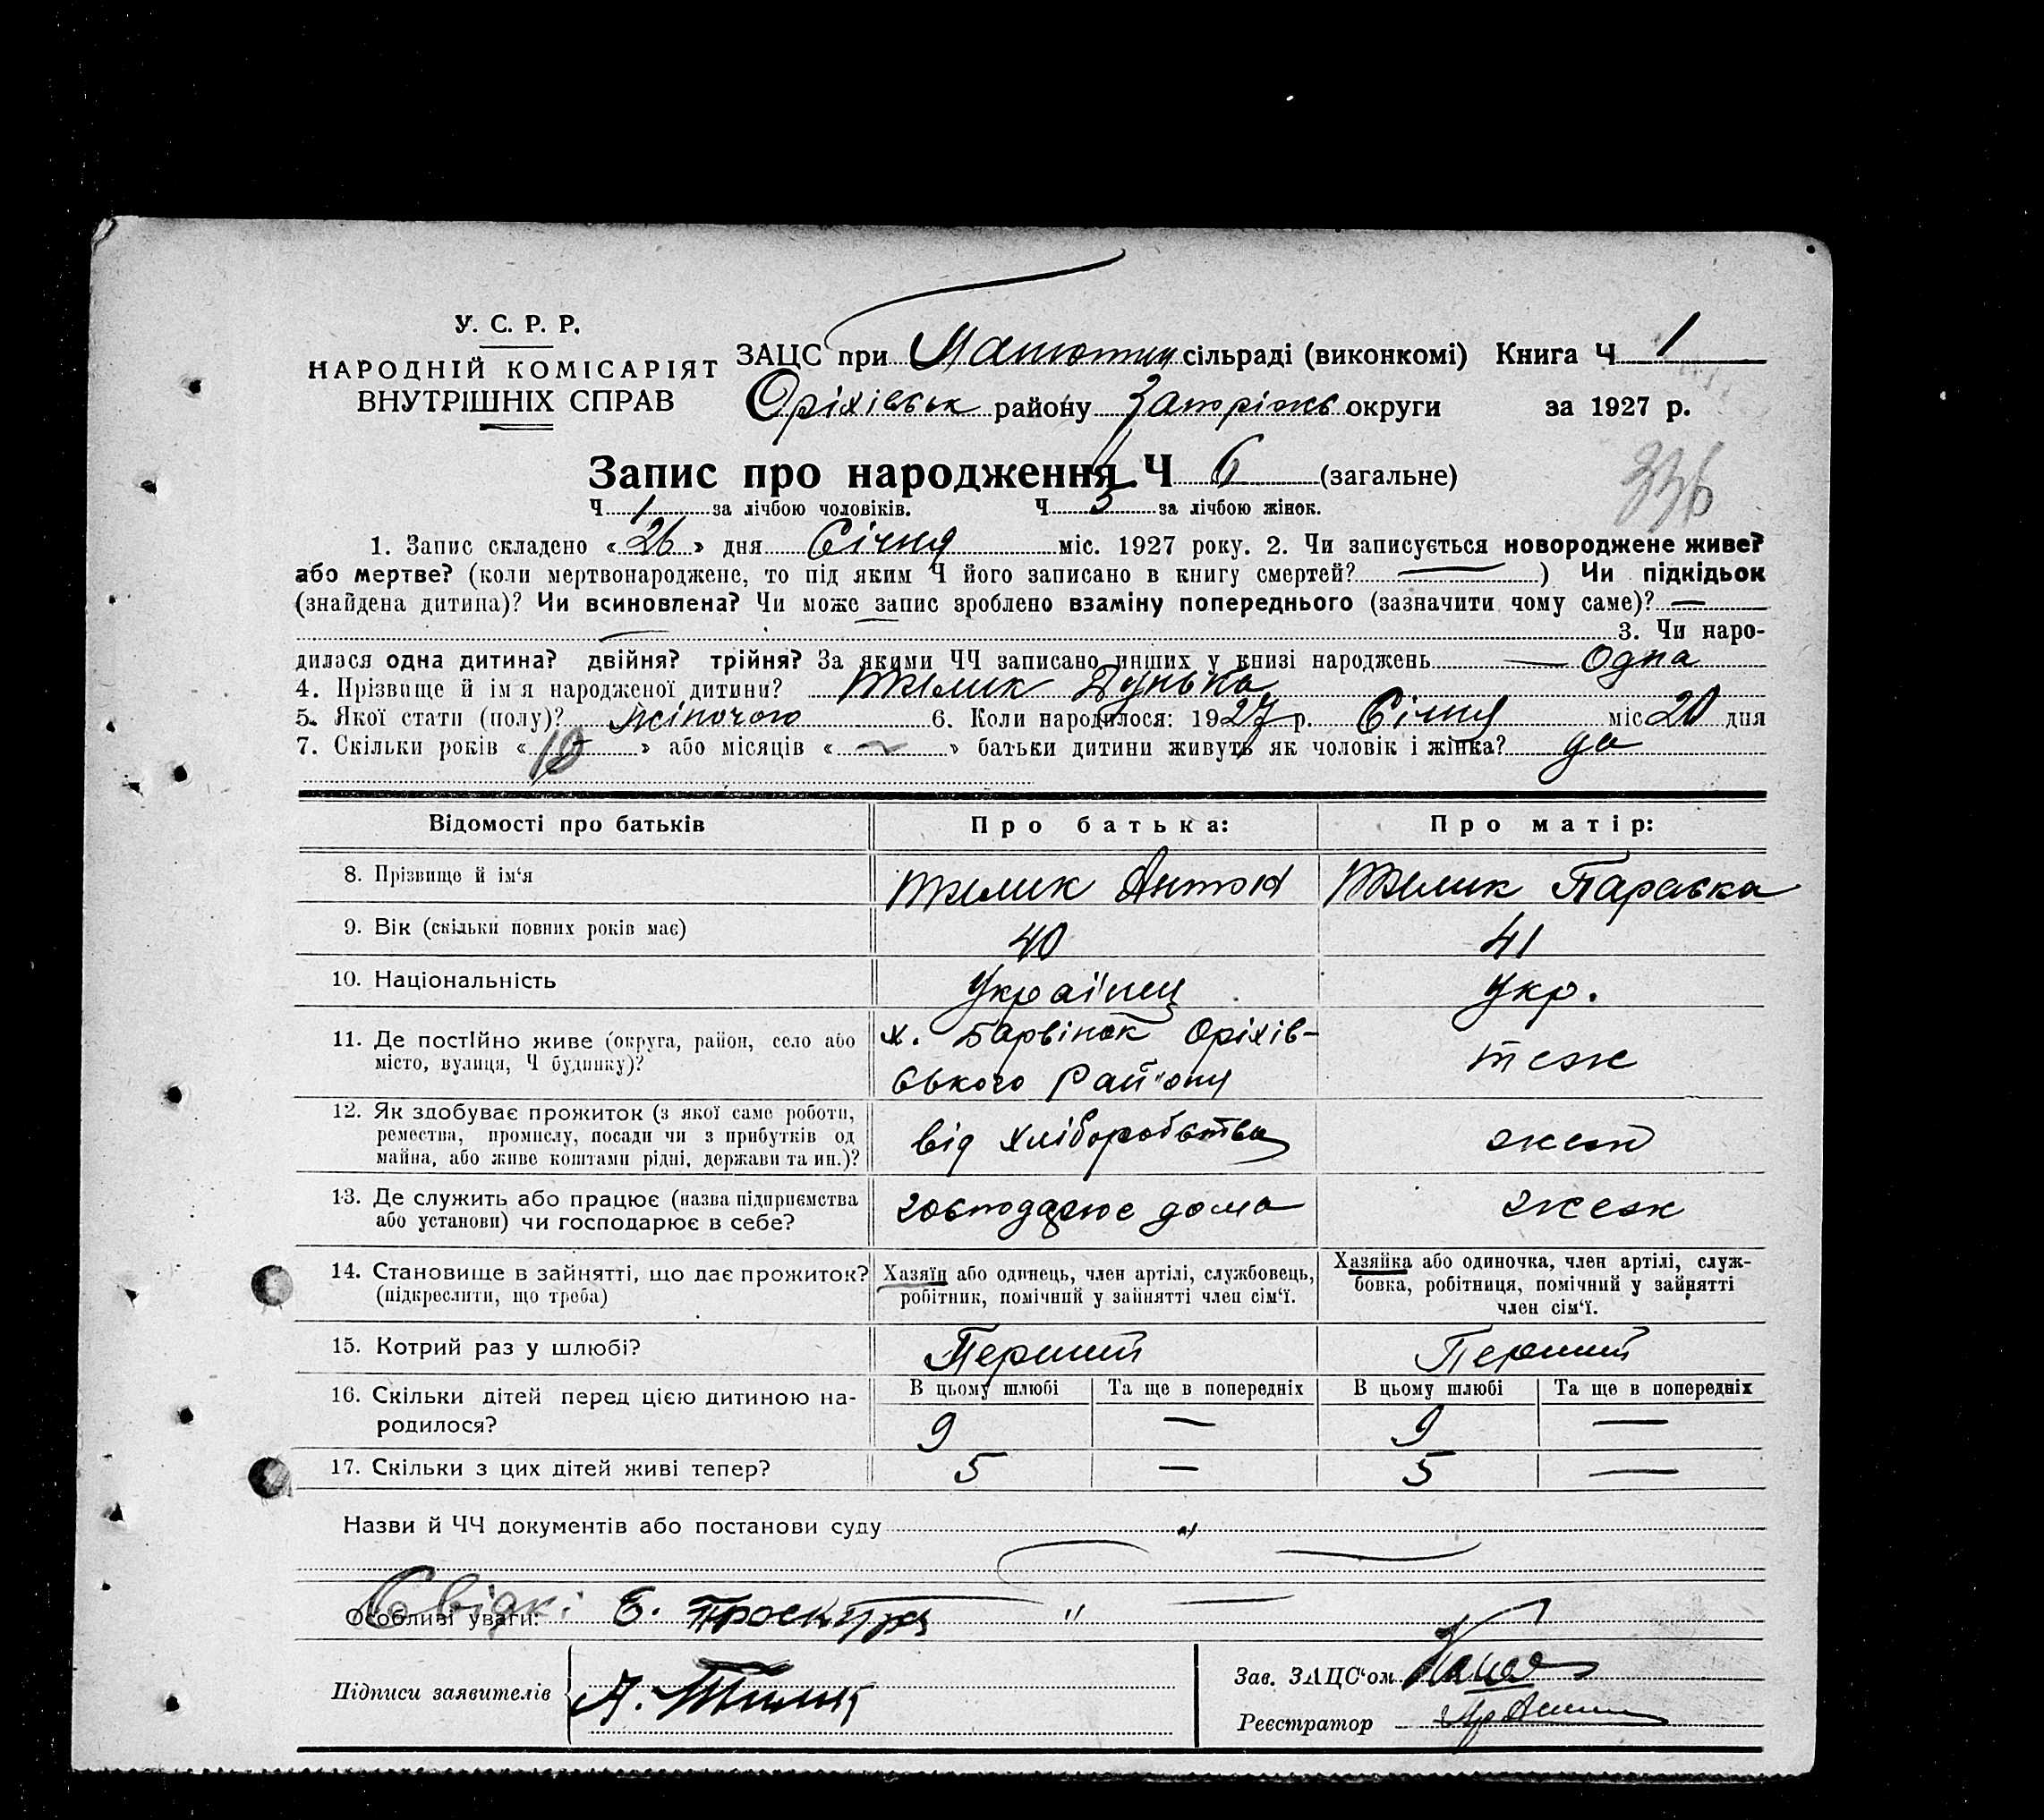 У. С. Р. Р.
НАРОДНІЙ КОМІСАРІЯТ
ВНУТРІШНІХ СПРАВ
ЗАЦС при сільраді (виконкомі) Книга Ч 1
Оріхівськ району Запоріжь округи за 1927 р.
Запис про народження Ч 6 (загальне)
336
Ч 1 за лічбою чоловіків. Ч 5 за лічбою жінок.
1. Запис складено « 26 » дня Січня міс. 1927 року. 2. Чи записується новороджене живе?
або мертве? (коли мертвонароджене, то під яким Ч його записано в книгу смертей? —) Чи підкідьок
(знайдена дитина)? Чи всиновлена? Чи може запис зроблено взаміну попереднього (зазначити чому саме)? —
— 3. Чи наро-
дилася одна дитина? двійня? трійня? За якими ЧЧ записано инших у книзі народжень — Одна
4. Прізвище й імя народженої дитини? Тилик Дунька
5. Якої стати (полу)? жіночою 6. Коли народилося: 1927 р. Січня міс 20 дня
7. Скільки років « » або місяців « ~ » батьки дитини живуть як чоловік і жінка? да
Відомості про батьків Про батька: Про матір:
8. Прізвище й ім‘я Тилик Антон Тилик Параска
9. Вік (скільки повних років має) 40 41
10. Національність Українец Укр.
11. Де постійно живе (округа, район, село або
місто, вулиця, Ч будинку)? х. Барвінок Оріхів-
ського Района теж
12. Як здобуває прожиток (з якої саме роботи,
ремества, промислу, посади чи з прибутків од
майна, або живе коштами рідні, держави та ин.)? від хліборобства
13. Де служить або працює (назва підприємства
або установи) чи господарює в себе? господарює дома
14. Становище в зайнятті, що дає прожиток?
(підкреслити, що треба)
Хазяїн або одинець, член артілі, службовець,
робітник, помічний у зайнятті член сім‘ї.
Хазяйка або одиночка, член артілі, служ-
бовка, робітниця, помічний у зайнятті
член сім‘ї.
15. Котрий раз у шлюбі? Перший Перший
16. Скільки дітей перед цією дитиною на-
родилося?
В цьому шлюбі Та ще в попередніх В цьому шлюбі Та ще в попередніх
9 — 9 —
17. Скільки з цих дітей живі тепер? 5 — 5 —
Назви й ЧЧ документів або постанови суду
Особливі уваги: Свідкі: Е.
Підписи заявителів А. Тилик
Зав. ЗАЦС‘ом
Реєстратор